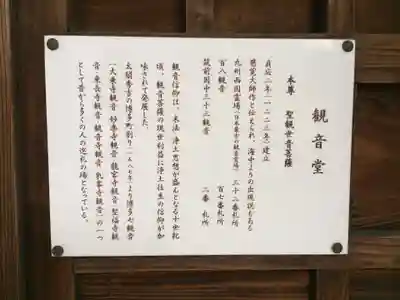 観音堂
本尊 聖観世音菩薩
貞応二年(一二二三年)建立
慈覚大師作と伝えられ、海中よりの出現説もある
九州西国霊場(日本最古の観音霊場) 三十二番札所
百八観音 百七番札所
筑前国中三十三観音 二番 札所
観音信仰は、末法・浄土思想が盛んとなる十世紀
頃、観音菩薩の現世利益に浄土往生の信仰が加
味されて発展した。
太閤秀吉の博多町割り(一五八七年)より博多七観音
(大乗寺観音 妙楽寺観音 龍宮寺観音 聖福寺観
音 東長寺観音 観音寺観音 乳峯寺観音)の一つ
として昔から多くの人の巡礼の場となっている。